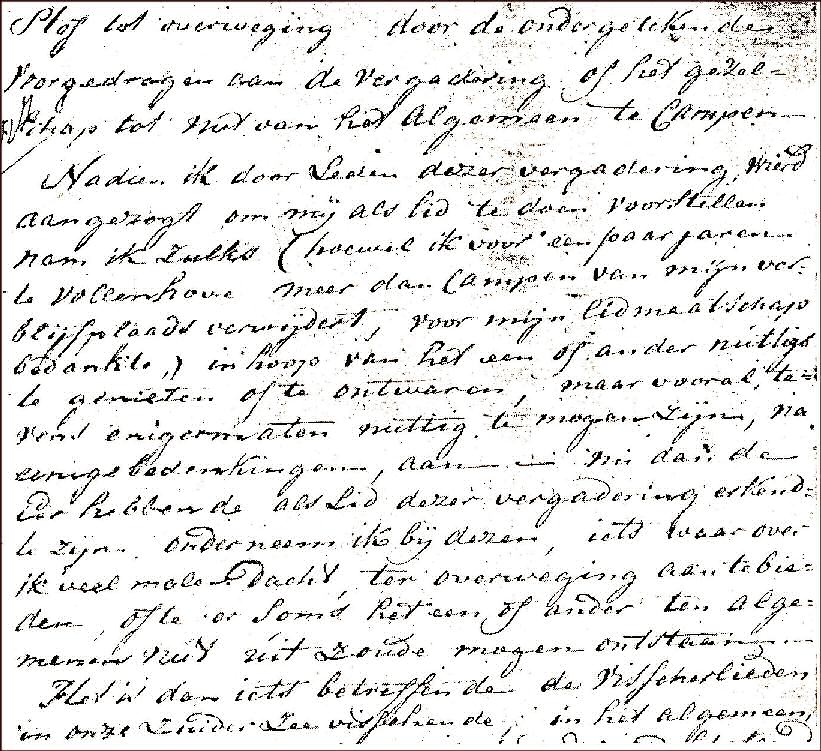 Stof tot overweging door de ondergetekende
Voorgedragen aan de vergadering of het gezel=
schap tot nut van het Algemeen te Campen
Nadien ik door Leden dezer vergadering, wierd
aangezogt om mij als lid te doen voorstellen
nam ik zulks (hoewel ik voor een paar jaren
te Vollenhove meer dan Campen van mijn ver=
blijfplaads verwijdert, voor mijn lidmaatschap
bedankte,) in hoop van het een of ander nuttigs
te genieten of te ontwaren, maar vooral, te=
vens enigermaten nuttig te mogen zijn, na
enige bedenkingen, aan nu dan de
Eer hebbende als Lid dezer vergadering erkend
te zijn onderneem ik bij dezen, iets waar over
ik veel malen dacht, ter overweging aan te bie=
den, of te er soms het een of ander ten alge=
menen nut uit zoude mogen ontstaan
Het is dan iets betreffende de Visscherlieden
in onze Zuider Zee visschende, in het algemeen,